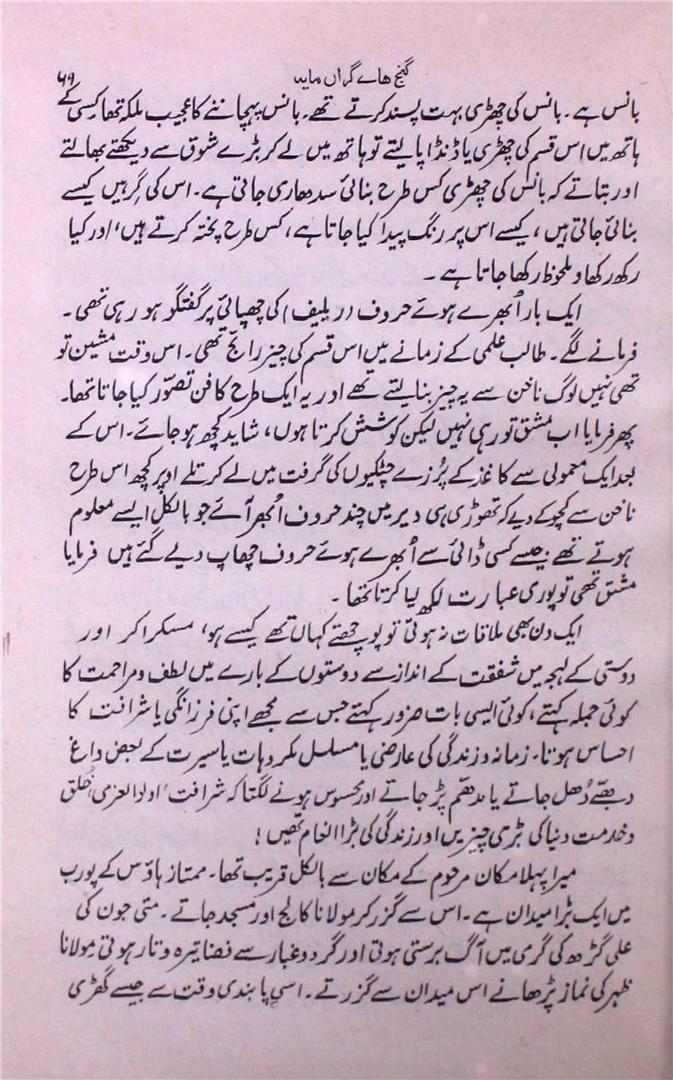 گنج ھاے گراں مایہ
۶۹
بانس ہے۔ بانس کی چھڑی بہت پسند کرتے تھے۔ بانس پہچاننے کا عجیب ملکہ تھا کسی کے
ہاتھ میں اس قسم کی چھڑی یا ڈنڈا پا لیتے تو ہاتھ میں لے کر بڑے شوق سے دیکھتے بھالتے
اور بتاتے کہ بانس کی چھڑی کس طرح بنائی سدھاری جاتی ہے۔ اس کی گرہیں کیسے
بنائی جاتی ہیں، کیسے اس پر رنگ پیدا کیا جاتا ہے، کس طرح پختہ کرتے ہیں، اور کیا
رکھ رکھاؤ ملحوظ رکھا جاتا ہے۔
ایک بار اُبھرے ہوئے حروف (ریلیف) کی چھپائی پر گفتگو ہو رہی تھی۔
فرمانے لگے۔ طالب علمی کے زمانے میں اس قسم کی چیز رائج تھی۔ اس وقت مشین تو
تھی نہیں لوگ ناخن سے یہ چیز بنا لیتے تھے اور یہ ایک طرح کا فن تصوّر کیا جاتا تھا۔
پھر فرمایا اب مشق تو رہی نہیں لیکن کوشش کرتا ہوں، شاید کچھ ہو جائے۔ اس کے
بعد ایک معمولی سے کاغذ کے پُرزے چٹکیوں کی گرفت میں لے کر تلے اوپر کچھ اس طرح
ناخن سے کچوکے دیے کہ تھوڑی ہی دیر میں چند حروف اُبھر آئے جو بالکل ایسے معلوم
ہوتے تھے جیسے کسی ڈائی سے اُبھرے ہوئے حروف چھاپ دیے گئے ہیں فرمایا
مشق تھی تو پوری عبارت لکھ لیا کرتا تھا۔
ایک دن بھی ملاقات نہ ہوتی تو پوچھتے کہاں تھے کیسے ہو، مسکرا کر اور
دوستی کے لہجہ میں شفقت کے انداز سے دوستوں کے بارے میں لطف و مراحمت کا
کوئی جملہ کہتے، کوئی ایسی بات ضرور کہتے جس سے مجھے اپنی فرزانگی یا شرافت کا
احساس ہوتا۔ زمانہ و زندگی کی عارضی یا مسلسل مکروہات یا سیرت کے بعض داغ
دھبّے دُھل جاتے یا مدھم پڑ جاتے اور محسوس ہونے لگتا کہ شرافت، اولوالعزمی، خلق
و خدمت دنیا کی بڑی چیزیں اور زندگی کی بڑا انعام تھیں!
میرا پہلا مکان مرحوم کے مکان سے بالکل قریب تھا۔ ممتاز ہاؤس کے پورب
میں ایک بڑا میدان ہے۔ اس سے گزر کر مولانا کالج اور مسجد جاتے۔ مئی جون کی
علی گڑھ کی گرمی میں آگ برستی ہوتی اور گرد و غبار سے فضا تیرہ و تار ہوتی مولانا
ظہر کی نماز پڑھانے اس میدان سے گزرتے۔ اسی پابندی وقت سے جیسے گھڑی